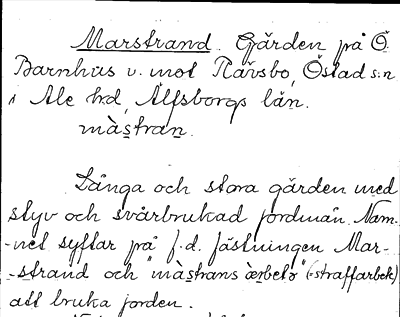 Marstrand. Gärden på Ö.
Barnhus v. mot Rävsbo, Östad s:n
i Ale hd, Älfsborgs län.
màs̱traṉ.
Långa och stora gärden med
styv och svårbrukad jordmån. Nam-
-net syftar på f.d. fästningen Mar-
-strand och "màs̱trans æṟbetə" (=straffarbete)
att bruka jorden.